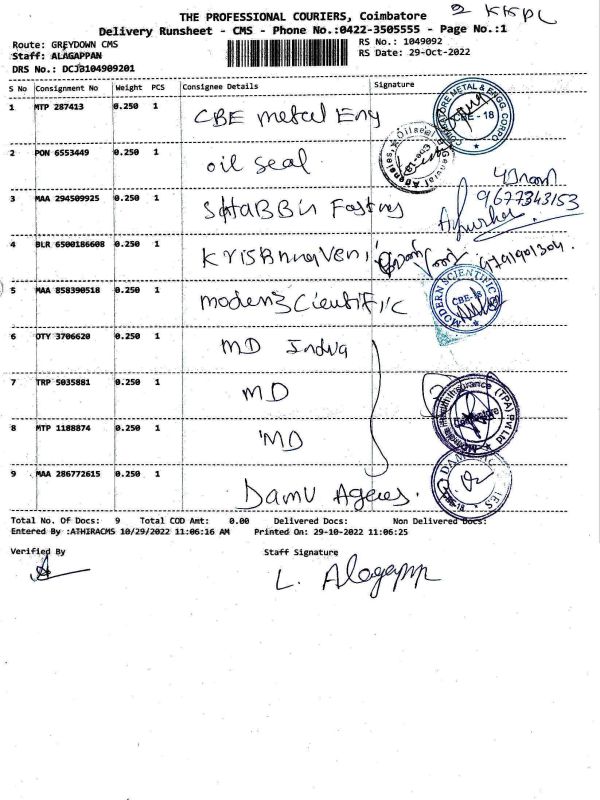 2 KKDC
THE PROFESSIONAL COURIERS, Coimbatore
Delivery Runsheet - CMS - Phone No.:0422-3505555 - Page No.:1
Route: GREYDOWN CMS RS No.: 1049092
Staff: ALAGAPPAN RS Date: 29-Oct-2022
DRS No.: DCJB104909201
S No Consignment No Weight PCS Consignee Details Signature
1 MTP 287413 0.250 1 CBE metal Eng
COIMBATORE METAL & ENGG. CORPO
CBE - 18
2 PON 6553449 0.250 1 oil seal
Oilseal & General Agencies
CBE-18
3 MAA 294509925 0.250 1
9677343153
4 BLR 6500186608 0.250 1 Krishnaveni
9791901304
5 MAA 858390518 0.250 1 modern Scientific
MODERN SCIENTIFIC
CBE-18
6 OTY 3706620 0.250 1 MD India
7 TRP 5035881 0.250 1 MD
Insurance (TPA) Pvt Ltd
Coimbatore
8 MTP 1188874 0.250 1 MD
9 MAA 286772615 0.250 1 Damu Agencies
Total No. Of Docs: 9 Total COD Amt: 0.00 Delivered Docs: Non Delivered Docs:
Entered By :ATHIRACMS 10/29/2022 11:06:16 AM Printed On: 29-10-2022 11:06:25
Verified By Staff Signature
L. Alagapp